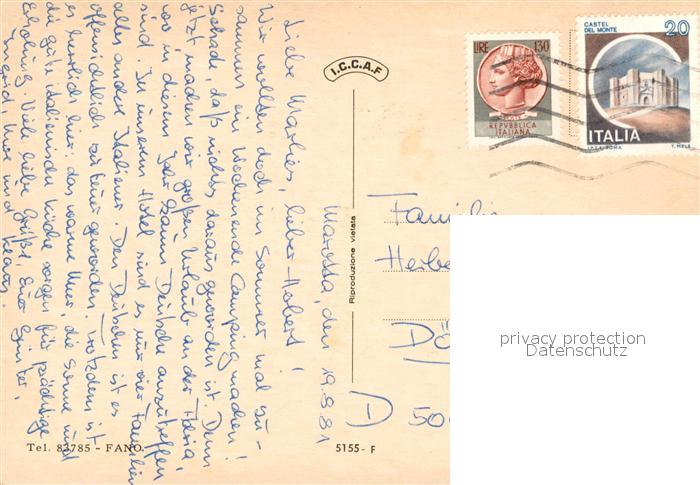 Marotta, den 19.8.81
Liebe Marlies, lieber Herbert!
Wir wollten doch im Sommer mal zu-
sammen ein Wochenende Camping machen!
Schade, daß nichts daraus geworden ist. Denn
jetzt machen wir großen Urlaub an der Adria
wo in diesem Jahr kaum Deutsche anzutreffen
sind. In unserem Hotel sind es nur vier Familien
alles andere Italiener. Den Deutschen ist es
offensichtlich zu teuer geworden. Trotzdem ist
es herrlich hier: das warme Meer, die Sonne und
die gute italienische Küche sorgen für prächtige
Erholung. Viele liebe Grüße, Eure Günter,
Ingrid, und
I.C.C.A.F
LIRE 130
REPVBBLICA
ITALIANA
CASTEL
DEL MONTE
20
ITALIA
I.P.Z.S. ROMA
T. MELE
Riproduzione vietata
Familie
Herbe
Dö
D 500
privacy protection
Datenschutz
Tel. 83785 - FANO
5155 - F